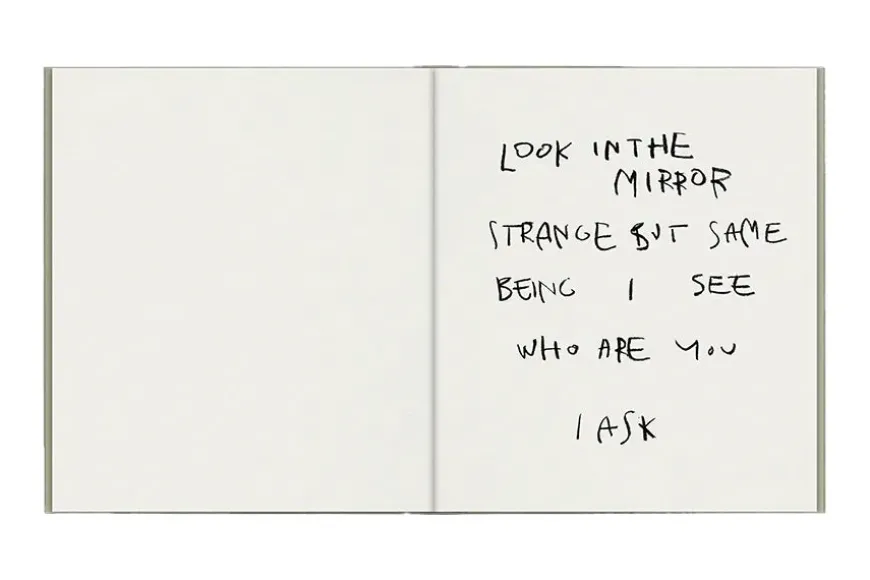 LOOK IN THE
MIRROR
STRANGE BUT SAME
BEING I SEE
WHO ARE YOU
I ASK